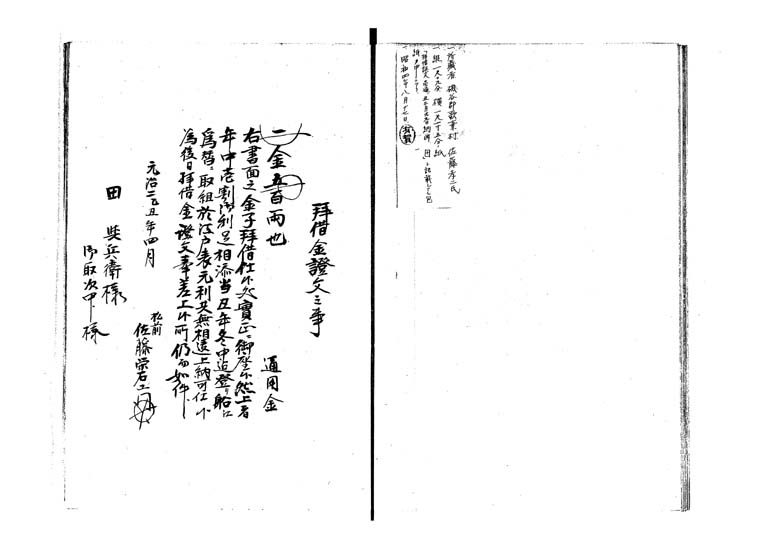 一、所蔵者 磯谷郡歌棄村 佐藤孝三氏
一、昭和四年八月十七日
拜借金證文之事
一金五百両也 通用金
右書面之金子拜借仕候処實正ニ御座候然上者
年中壱割御利足相添当丑年冬中迄登り船江
為替ニ取組於江戸表元利共無相違上納可仕候
為後日拜借金證文奉差上候所仍而如件
元治二乙丑年四月
松前
佐藤栄右エ門
田 柴兵衛様
御取次中様